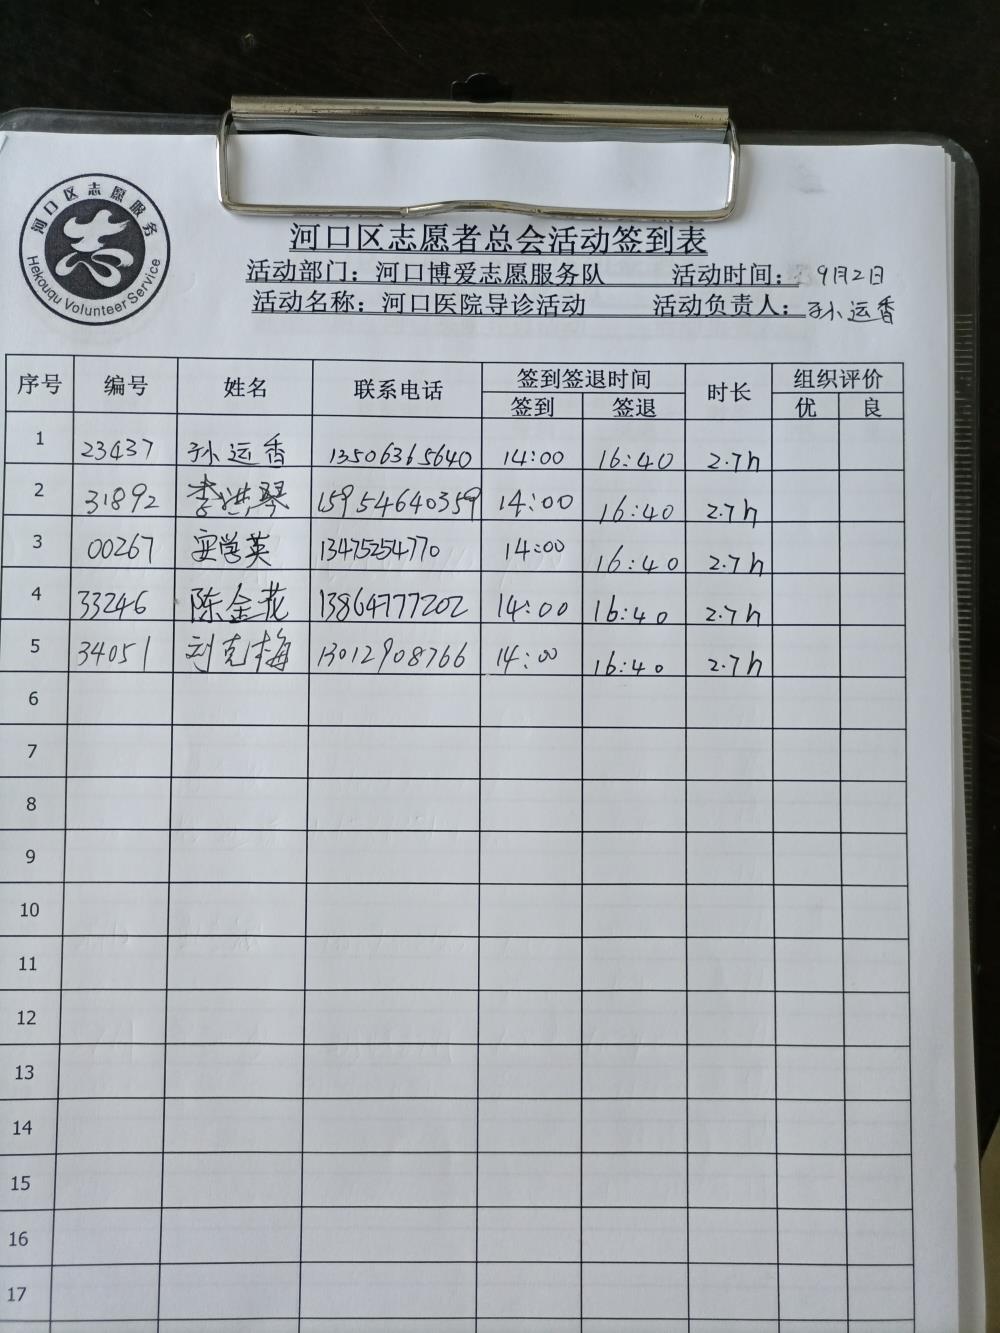 河口区志愿服务
志
Hekouqu Volunteer Service
河口区志愿者总会活动签到表
活动部门：河口博爱志愿服务队 活动时间：9月2日
活动名称：河口医院导诊活动 活动负责人：孙运香
序号 编号 姓名 联系电话 签到签退时间 时长 组织评价
签到 签退 优 良
1 23437 孙运香 13506365640 14:00 16:40 2.7h
2 31892 李洪琴 15954640359 14:00 16:40 2.7h
3 00267 学英 13475254770 14:00 16:40 2.7h
4 33246 陈金花 13864777202 14:00 16:40 2.7h
5 34051 刘克梅 13012908766 14:00 16:40 2.7h
6
7
8
9
10
11
12
13
14
15
16
17